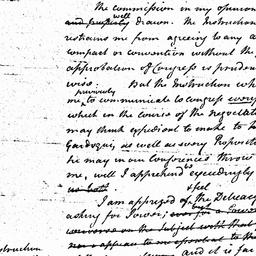 The Commission in my opinion
well
and properly drawn. The Instruction
restrains me from agreeing to any a
compact or convention without the
approbation of Congress is pruden
wise. But the Instruction wh
previously
me to communicate to Congress every
which in the course of the Negotiat
may think expedient to make to
Gardoqui, as well as every Proposit
he may in our Conferences throw
me, will I apprehend exceedingly
I feel
I am apprized of the Delicacy
asking for Power;
and it is far
struction